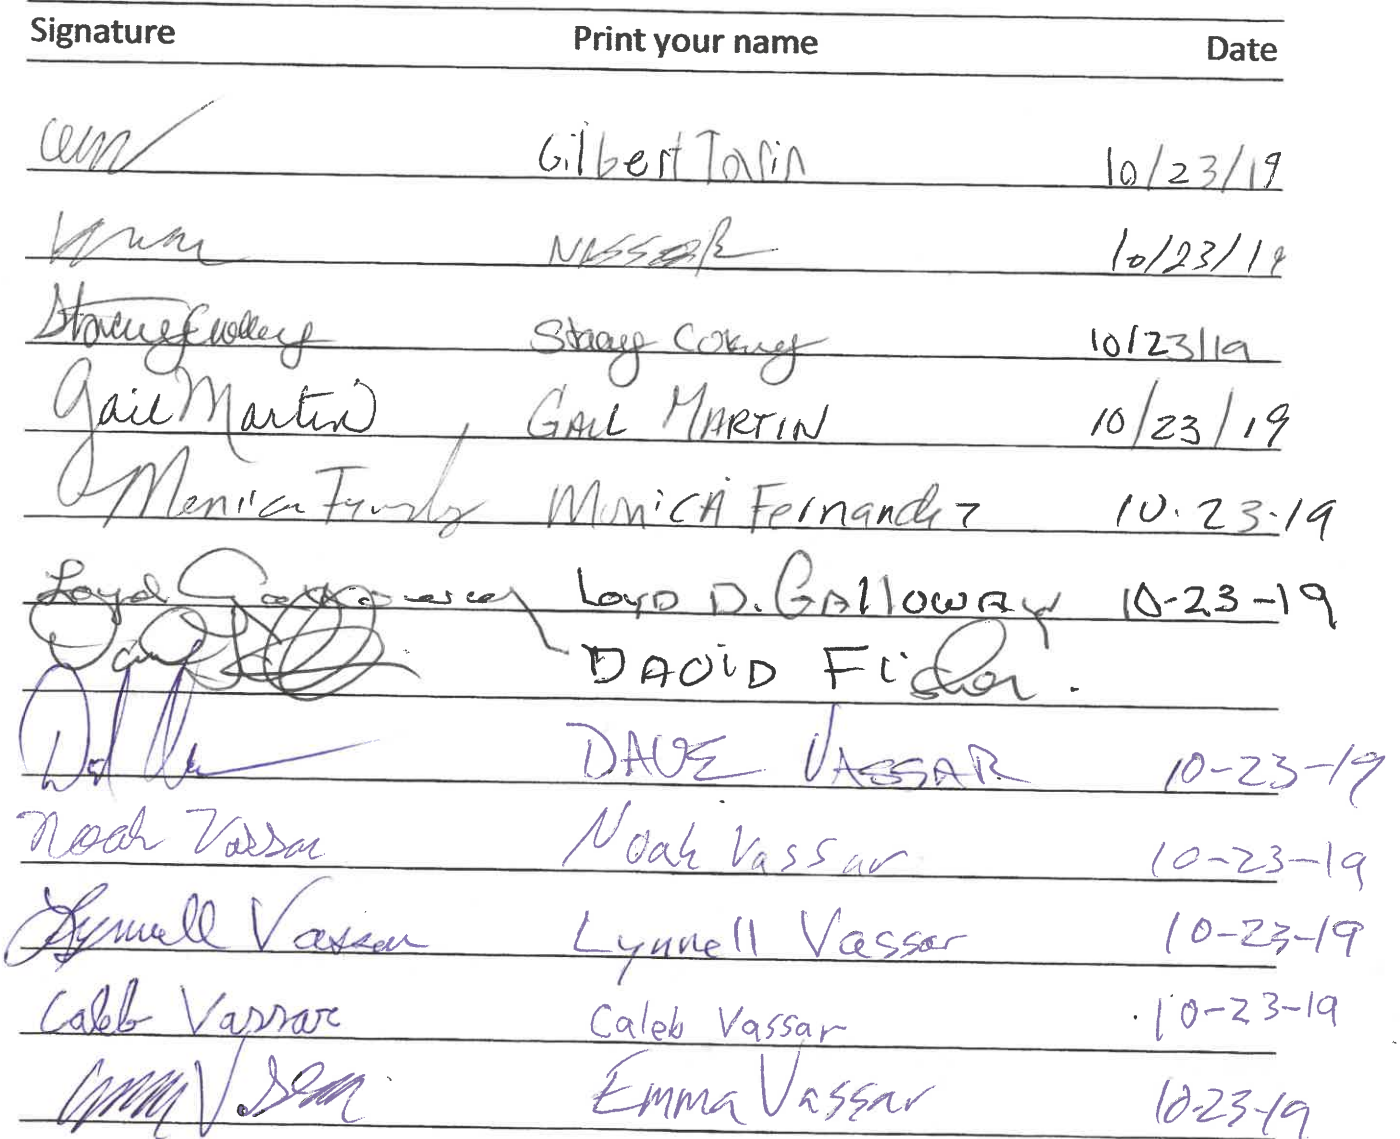 Signature Print your name Date
Gilbert Tarin 10/23/19
10/23/19
Stacey 10/23/19
Gail Martin GAIL MARTIN 10/23/19
Monica MONICA Fernandez 10-23-19
Loyd Galloway Loyd D. Galloway 10-23-19
David DAVID Fisher.
DAVE VASSAR 10-23-19
Noah Vassar Noah Vassar 10-23-19
Lynnell Vassar Lynnell Vassar 10-23-19
Caleb Vassar Caleb Vassar 10-23-19
Emma Vassar 10-23-19